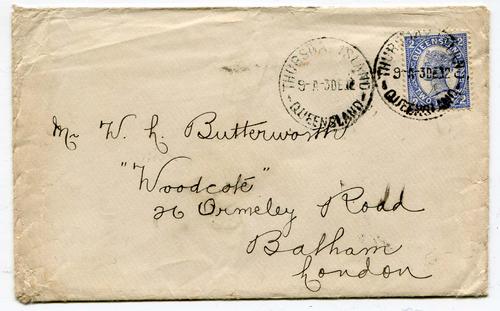 THURSDAY ISLAND
9-A-3DE12
QUEENSLAND
THURSDAY ISLAND
9-A-3DE12
QUEENSLAND
QUEENSLAND
2
2
2
Mr W. H. Butterworth
"Woodcote"
26 Ormeley Road
Balham
London